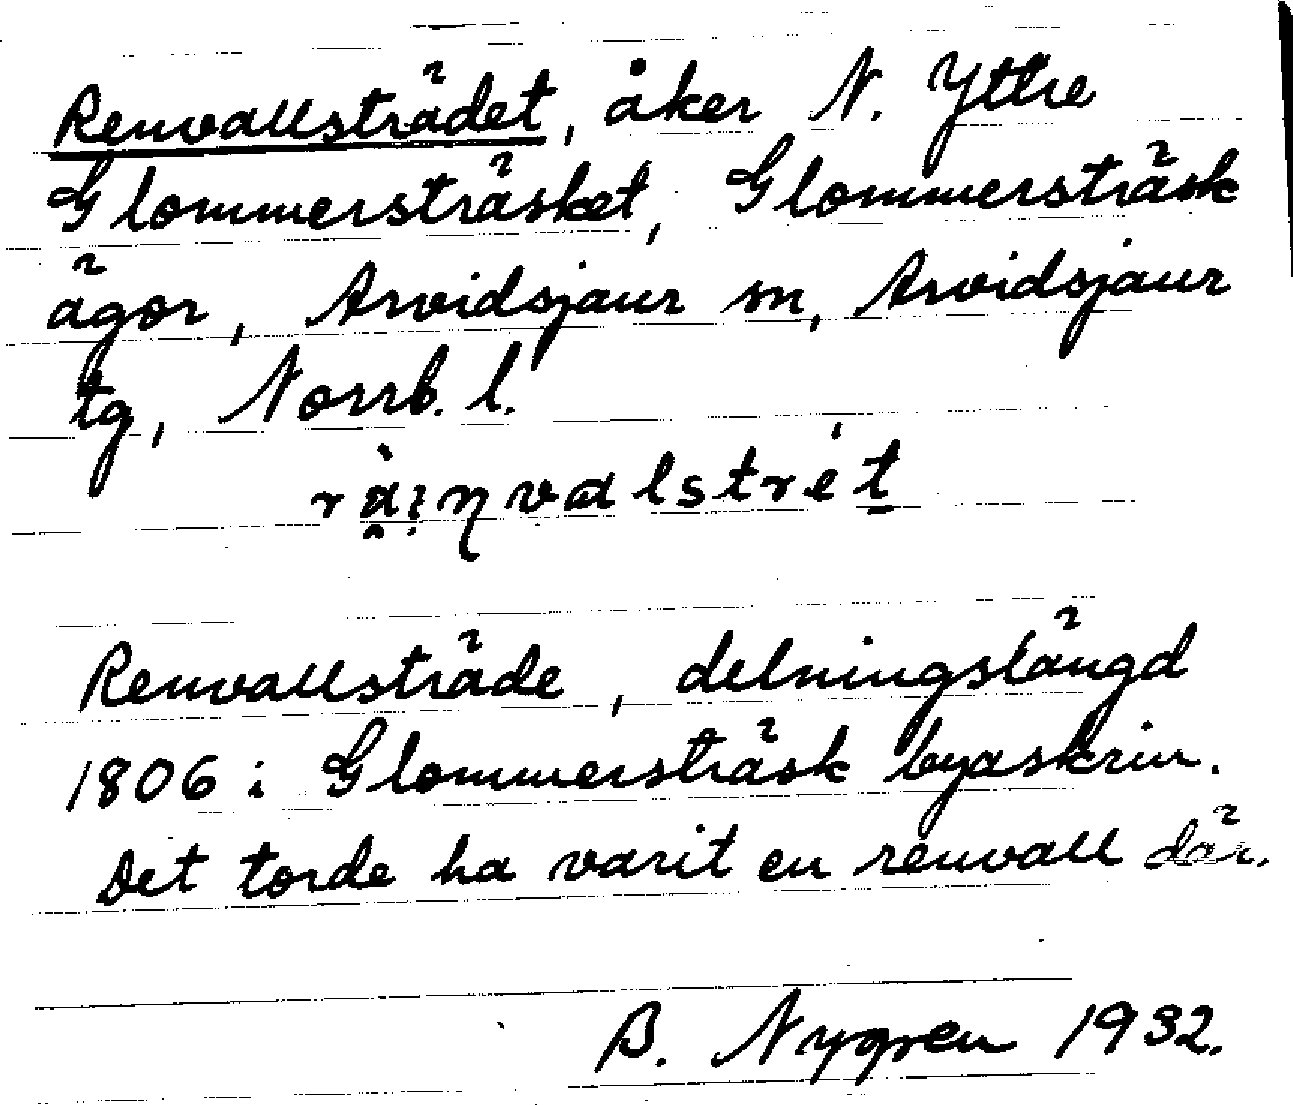 Renvallsträdet, åker N. Yttre
Glommersträsket, Glommersträsk
ägor, Arvidsjaur sn, Arvidsjaur
tg, Norrb. l.
Renvallsträde, delningslängd
1806 i Glommersträsk byaskrin.
Det torde ha varit en renvall där.
B. Nygren 1932.